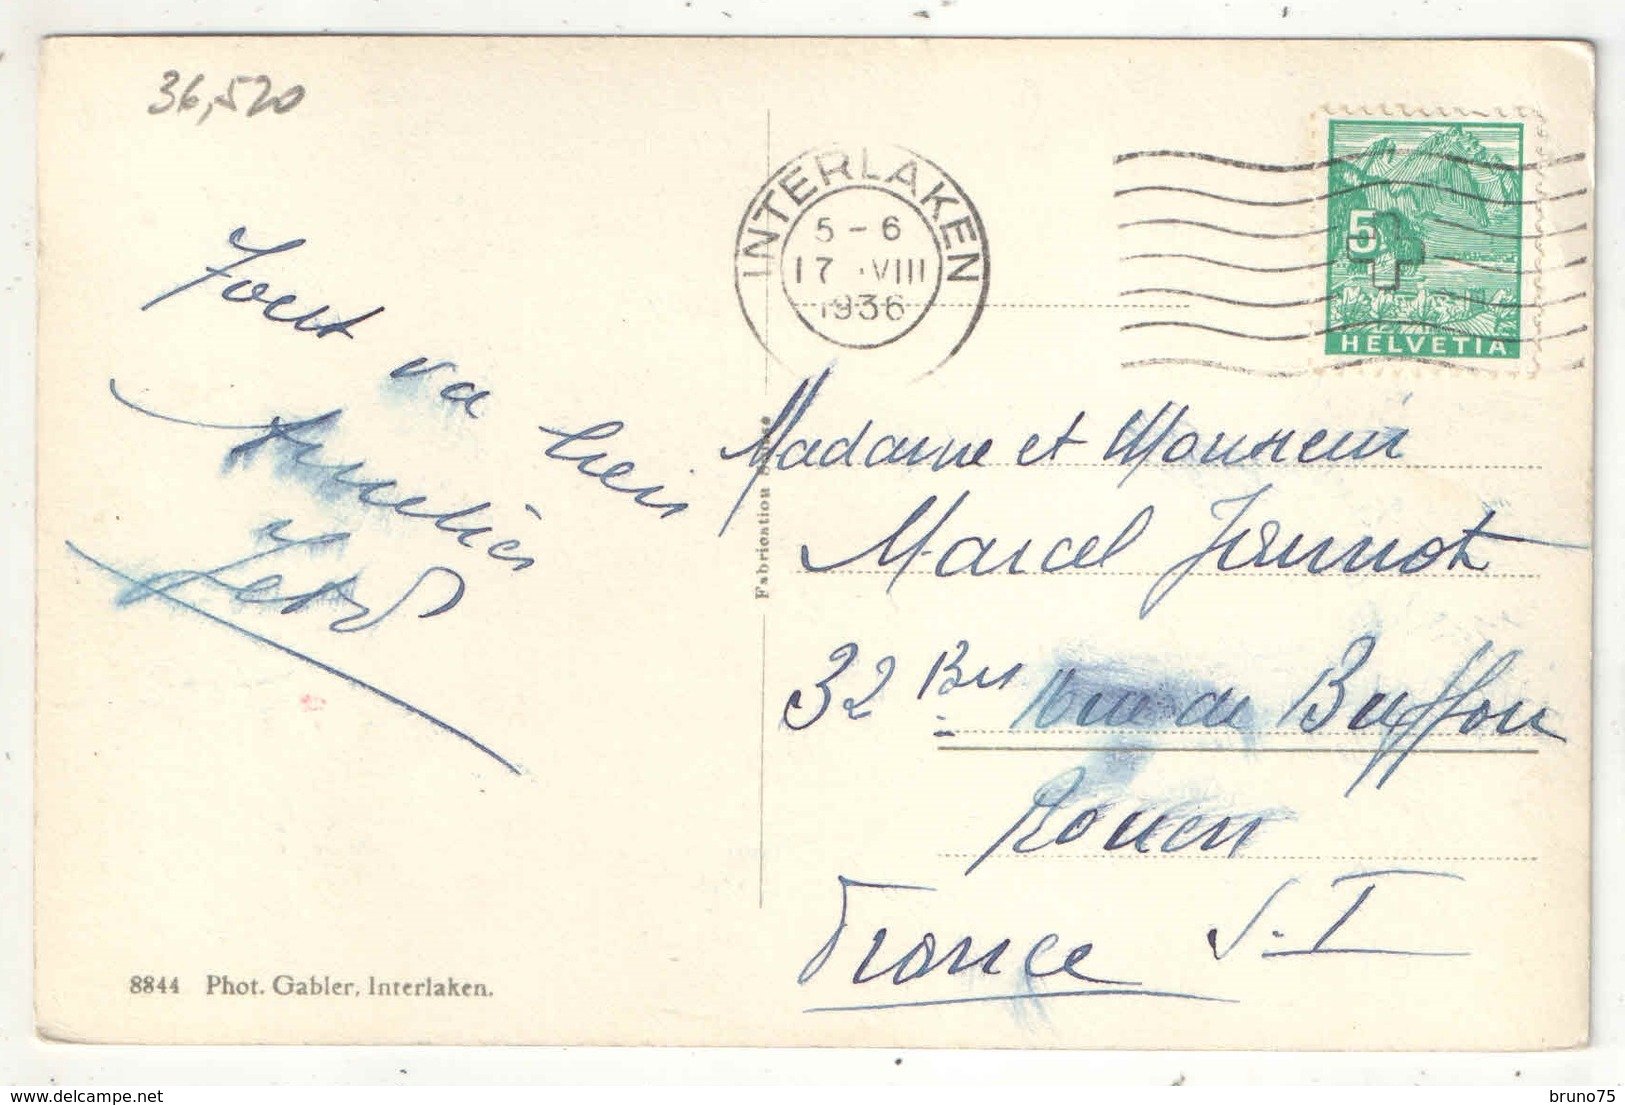 36,520
INTERLAKEN
5-6
17.VIII
1936
5
HELVETIA
Tout
va bien
Amitiés
Madame et Monsieur
Marcel Jannot
32 Bis rue de Buffon
Rouen
France S.I
Fabrication
8844 Phot. Gabler, Interlaken.
www.delcampe.net
bruno75